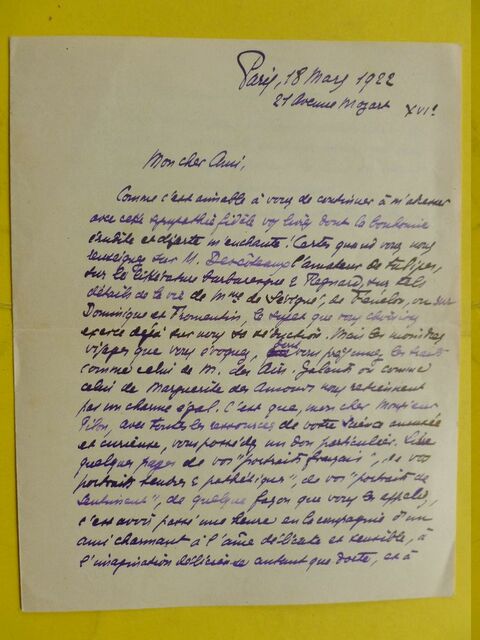 Paris, 18 Mars 1922
21 Avenue Mozart XVIe
Mon cher Ami,
Comme c'est aimable à vous de continuer à m'adresser
avec cette sympathie fidèle vos livres dont la bonhomie
érudite et diserte m'enchante! Certes quand vous nous
renseignez sur M. Descôteaux l'amateur de tulipes,
sur le Pittoresque barbaresque & Regnard, sur tels
détails de la vie de Mme de Sévigné, de Fénelon, ou sur
Dominique et Fromentin, le sujet que vous choisissez
exerce déjà sur nous sa séduction. Mais les moindres
visages que vous évoquez, dont vous les traits
comme celui de M. des Galants où comme
celui de Marguerite des Amours nous retiennent
par un charme égal. C'est que, mon cher Monsieur
Pilon, avec toutes les ressources de votre science
et curieuse, vous possédez un don particulier. Lire
quelques pages de vos "portraits français", de vos
portraits tendres & pathétiques", de vos "portraits de
sentiment", de quelque façon que vous les appeliez,
c'est avoir passé une heure en la compagnie d'un
ami charmant à l'âme délicate et sensible, à
l'imagination délicieuse autant que docte, et à